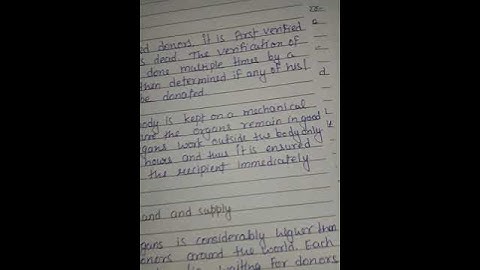 ed donors, It is first verified
s dead. The verification of
done multiple times by a
then determined if any of his/
be donated.
body is kept on a mechanical
the organs remain in good
gans work outside the body only
hours and thus it is ensured
the recipient immediately
and and supply
gans is considerably higher than
onors around the world. Each
waiting for donors